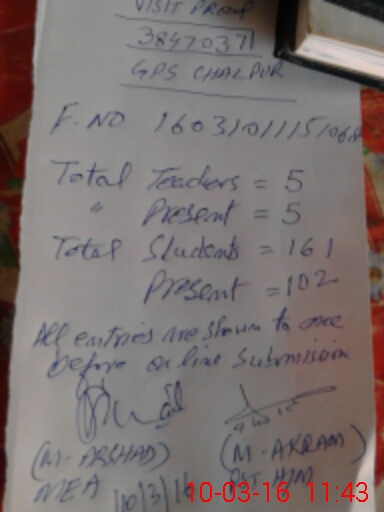 VISIT PROOF
38470371
GPS CHALPUR
F. NO 1603101115106
Total Teachers = 5
" Present = 5
Total Students = 161
Present = 102
All entries are shown to me
before on line Submission
(M. ARSHAD) (M. AKRAM)
MEA PST HM
10/3/16
10-03-16 11:43